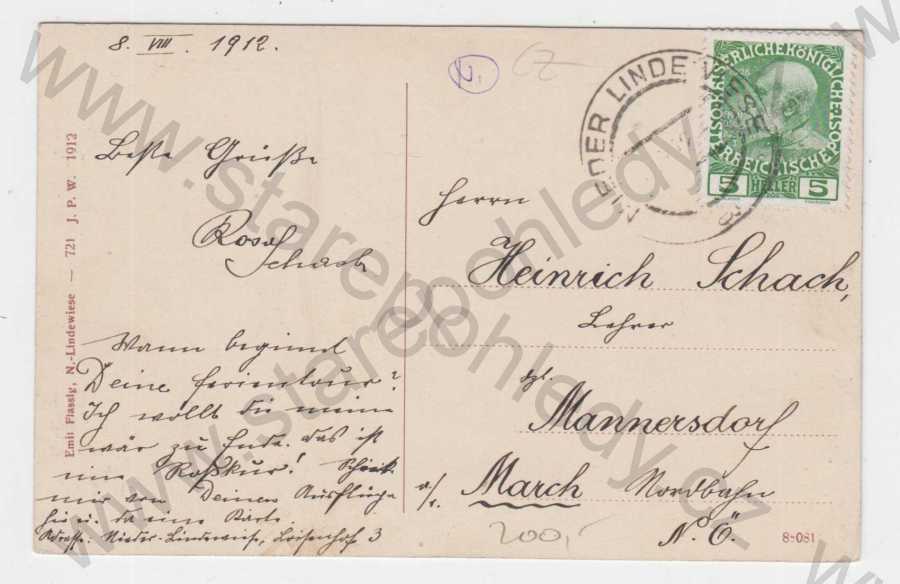 8. VIII. 1912.
Beste Grüße
Rosa
Schach
Wann beginnt
Deine Ferientour?
Ich wollt die meine
wär zu Ende. das ist
eine Roßkur! Schick
mir von Deinen Ausflügen
hie u. da eine Karte
Adresse: Nieder-Lindewiese, Loisenhof 3
Emil Flassig, N.-Lindewiese — 721 J. P. W. 1912
NIEDER LINDEWIESE
KAISERLICHE KÖNIGLICHE
ÖSTERREICHISCHE POST
5 HELLER 5
Herrn
Heinrich Schach,
Lehrer
Mannersdorf
a/d. March Nordbahn
N. Ö.
200,-
88081
www.starepohledy.cz
www.starepohledy.cz